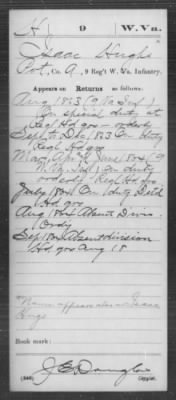 H 9 W. Va.
Isaac Hughs
Pvt, Co. A, 9 Reg't W. Va. Infantry.
Appears on Returns as follows.
Aug 1863 (9 Va Inf)
On special duty at
Regl Hd qrs
Sept to Dec 1863 On duty
Regl Hd qrs
June 1864 (9
on duty
orderly Regl Hd qrs
July 1864 On duty Detd
Hd qrs
Aug 1864 Absent Divis.
Ordy
Sep 1864 Absent division
Hd qrs Aug 18
Name appears also as Isaac
Hugs
Book mark:
(546) Copyist.